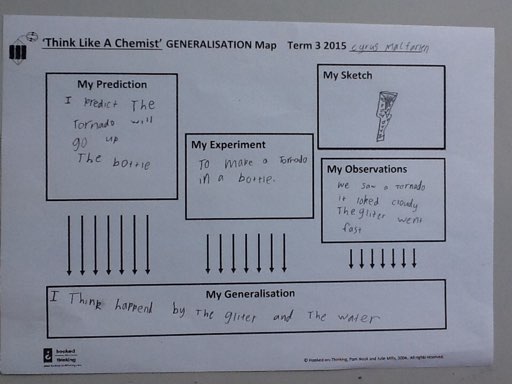 'Think Like A Chemist' GENERALISATION Map Term 3 2015 cyrus
My Prediction
I Predict The
Tornado will
go up
The bottle
My Experiment
To make a Tornado
in a bottle.
My Sketch
My Observations
we saw a tornado
it loked cloudy
The gliter went
fast
My Generalisation
I Think happend by The gliter and The water
hooked on
thinking
© Hooked-on-Thinking, Pam Hook and Julie Mills, 2004. All rights reserved.